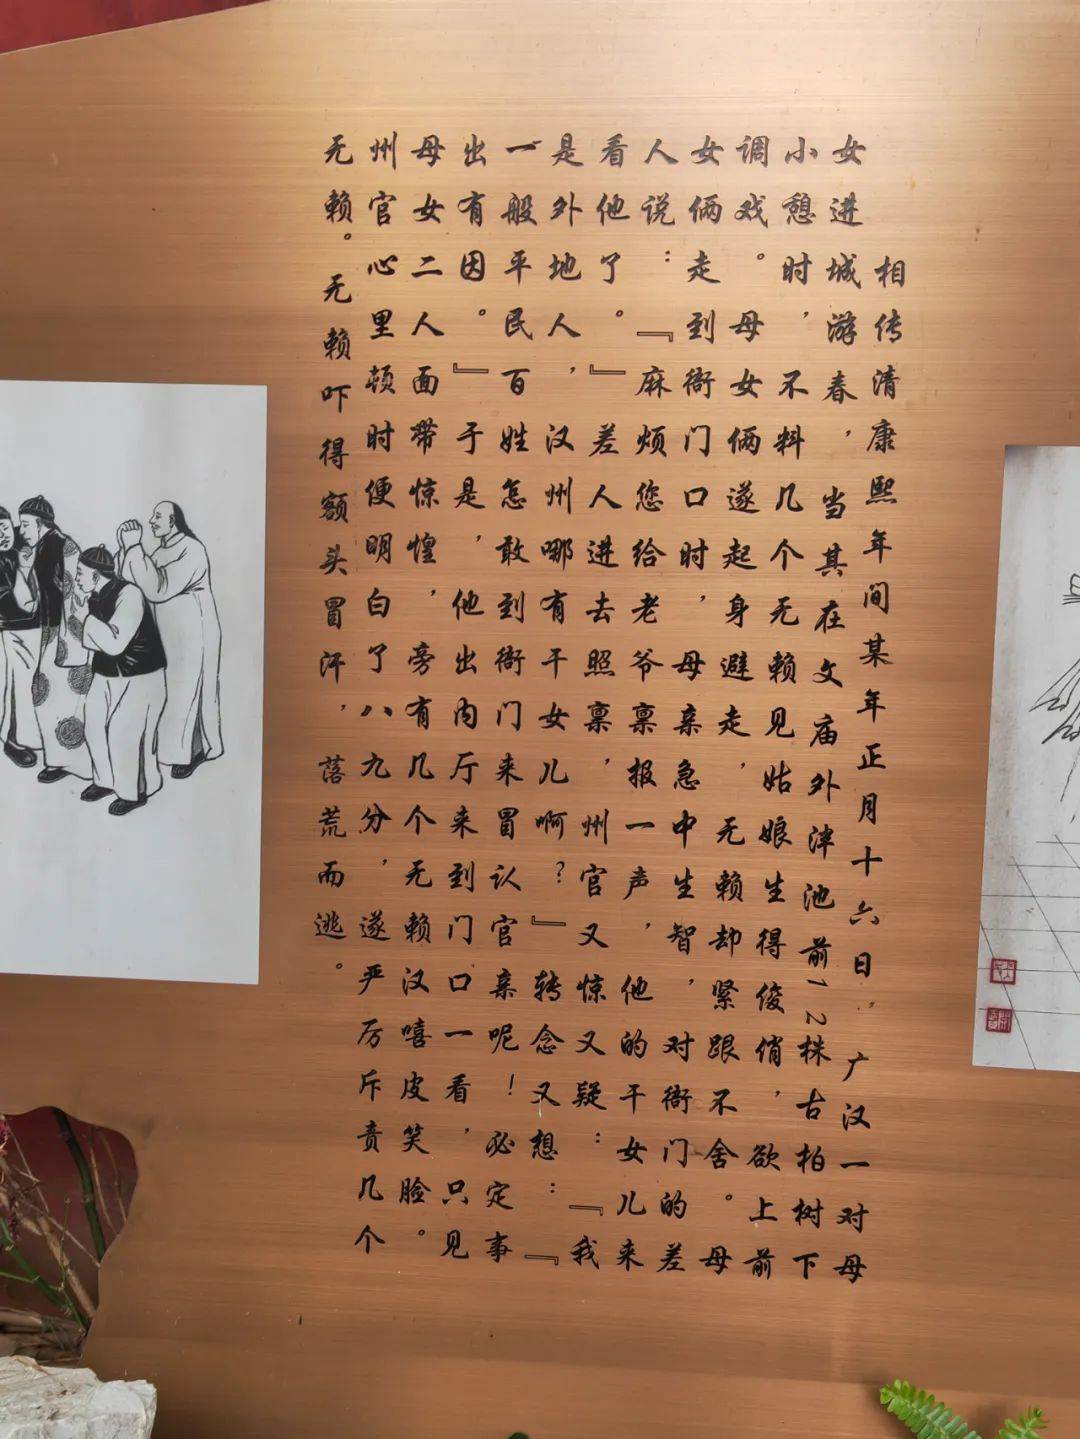 相传清康熙年间某年正月十六日，广汉一对母
女进城游春，当其在文庙外泮池前12株古柏树下
小憩时，不料几个无赖见姑娘生得俊俏，欲上前
调戏。母女俩遂起身避走，无赖却紧跟不舍。母
女俩走到衙门口时，母亲急中生智，对衙门的差
人说：『麻烦您给老爷禀报一声，他的干女儿来
看他了。』差人进去照禀，州官又惊又疑：『我
是外地人，汉州哪有干女儿啊？』转念又想：『
一般平民百姓怎敢到衙门来冒认官亲呢！必定事
出有因。』于是，他出内厅来到门口一看，只见
母女二人面带惊惶，旁有几个无赖汉嘻皮笑脸。
州官心里顿时便明白了八九分，遂严厉斥责几个
无赖。无赖吓得额头冒汗，落荒而逃。